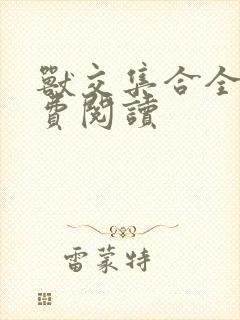 獸交集合全
費閱讀
雷蒙特